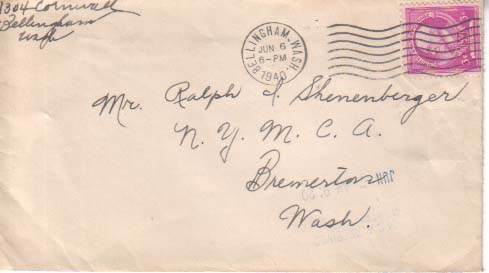 1304 Cornwall
Bellingham
Wash
BELLINGHAM, WASH.
JUN 6
6-PM
1940
Mr. Ralph I. Shenenberger
N. Y. M. C. A.
Bremerton
Wash.